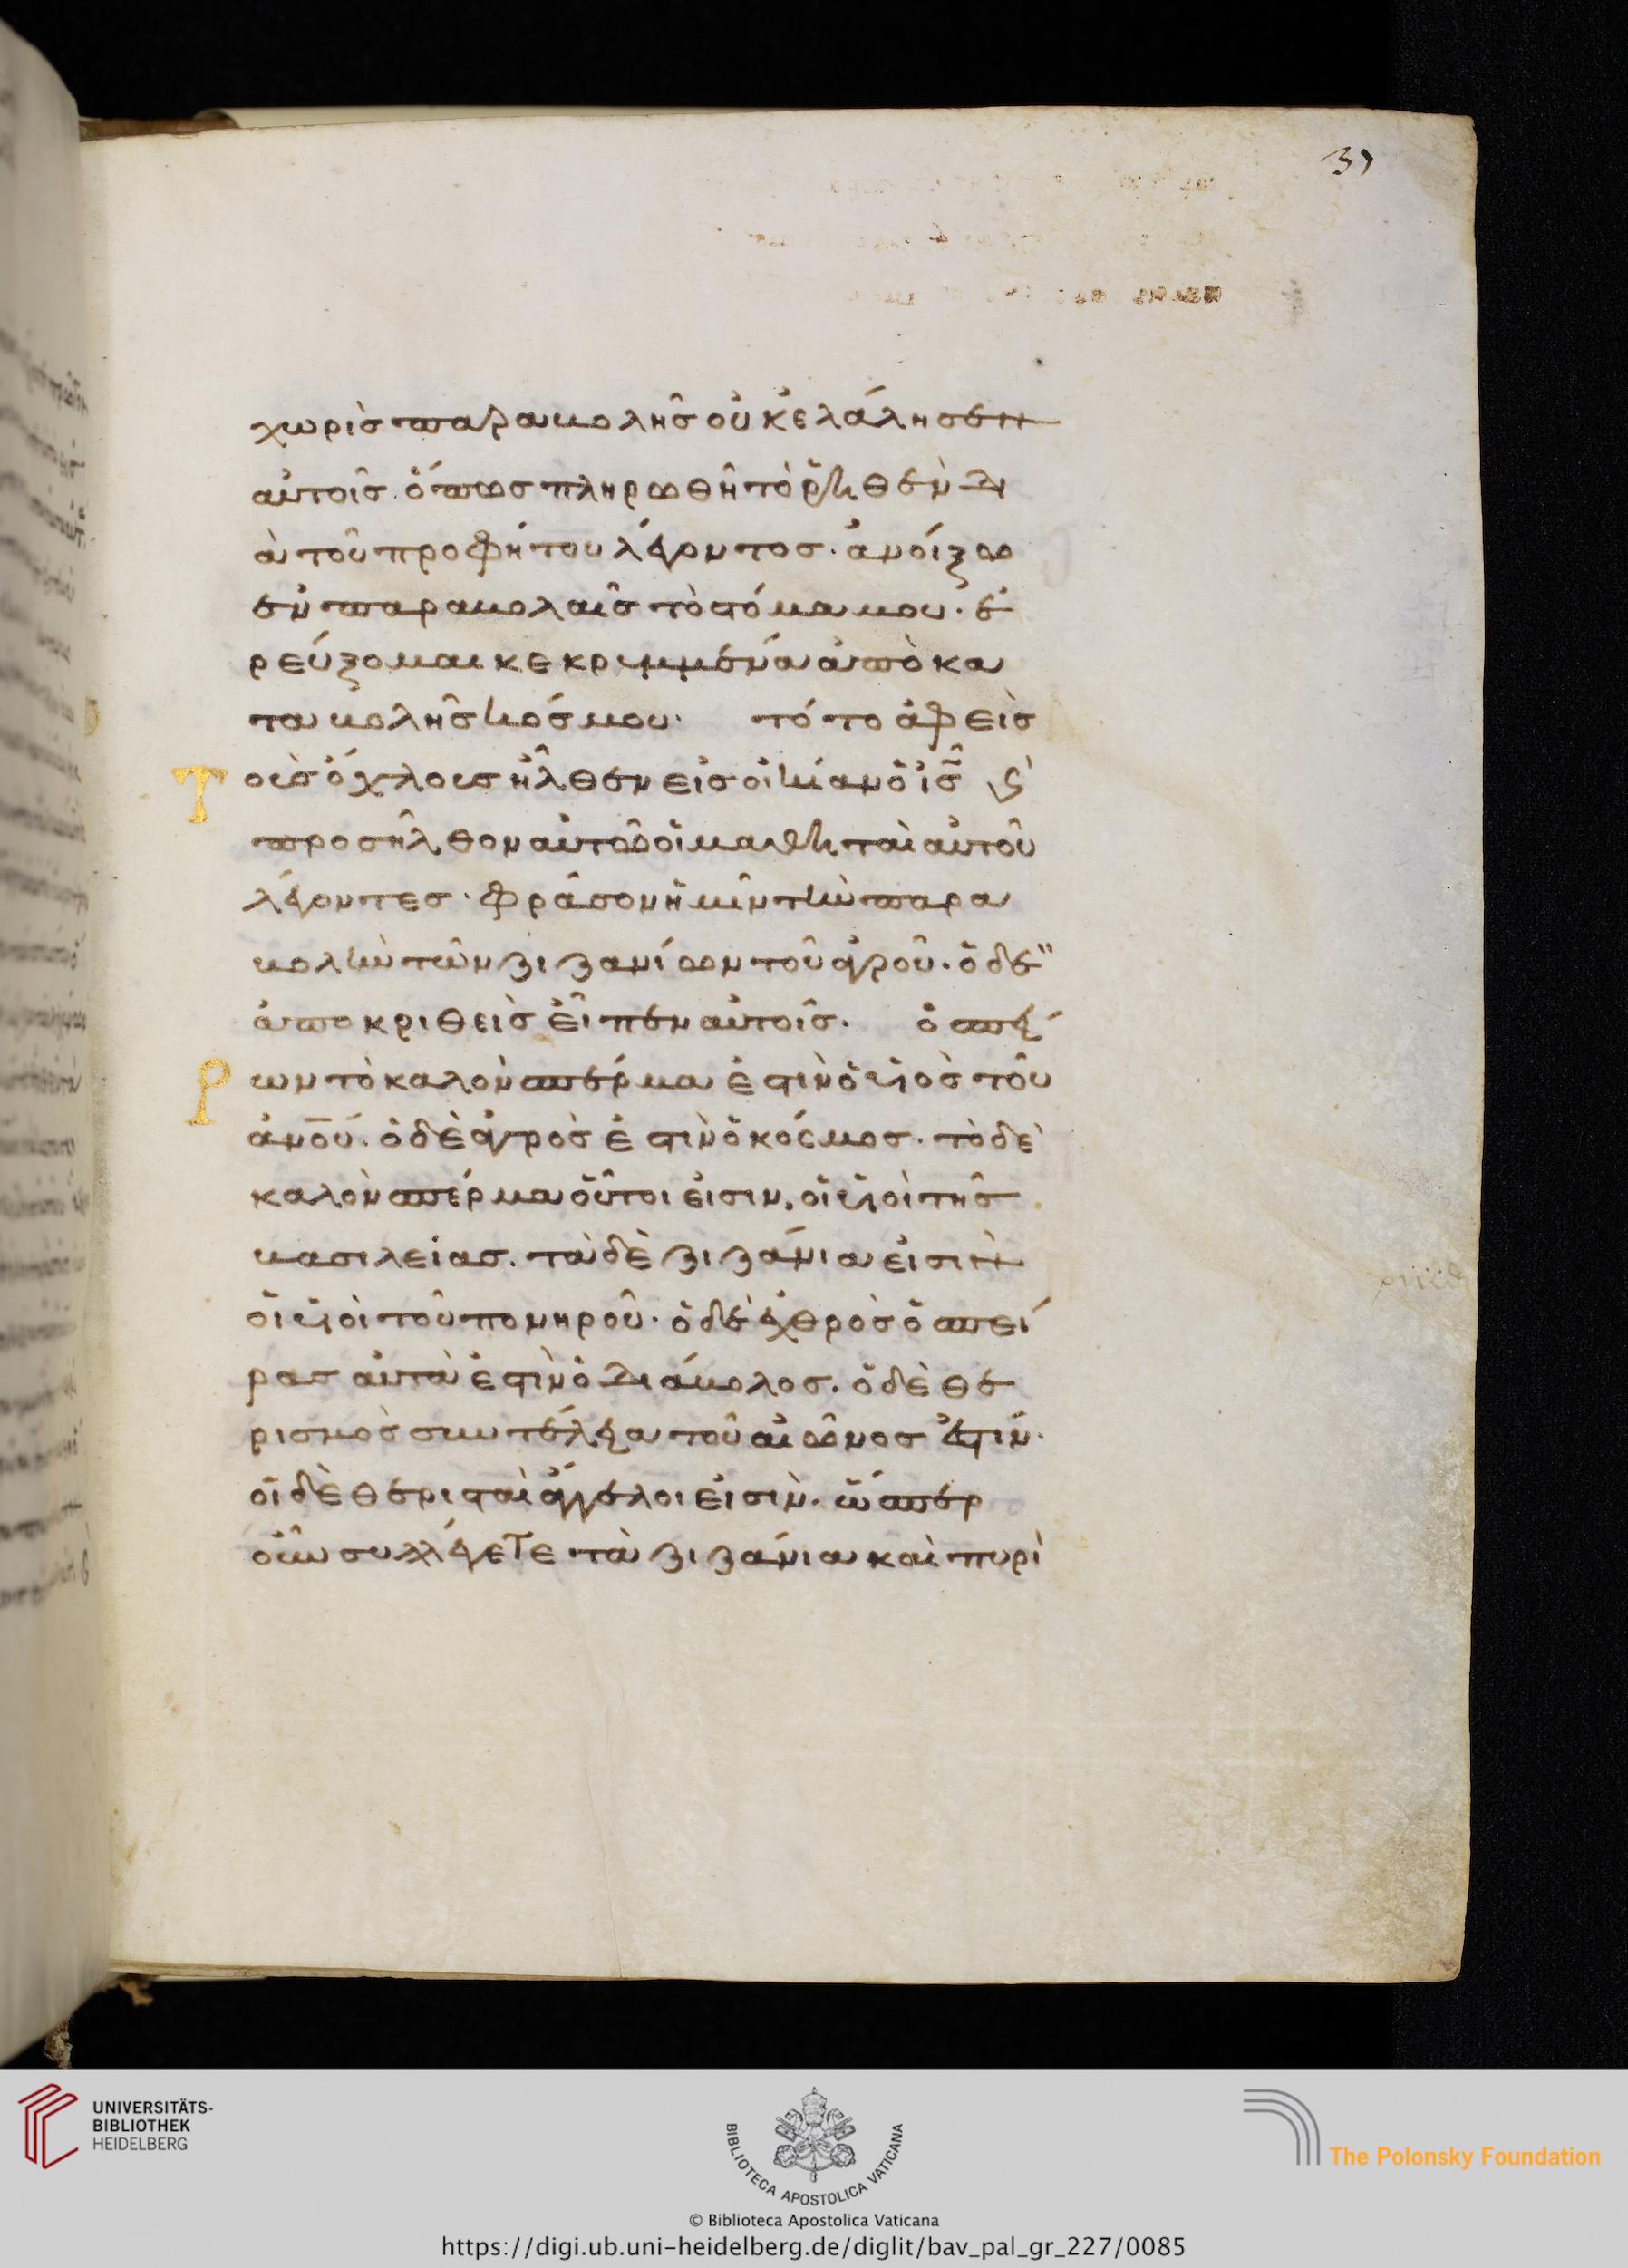 37
χωρὶσ παραβολῆσ οὐκ ἐλάλησεν
αὐτοῖσ. ὅπωσ πληρωθῆ τὸ ῥηθὲν δι
ὰ τοῦ προφήτου λέγοντοσ. ἀνοίξω
ἐν παραβολαῖσ τὸ στόμα μου. ἐ
ρεύξομαι κεκρυμμένα ἀπὸ κα
ταβολῆσ κόσμου. τότο ἀφεὶσ
Τ οὺσ ὄχλουσ ἦλθεν εἰσ οἰκίαν ὁ ἰσ̅ ϗ
προσῆλθον αὐτῶ οἱ μαθηταὶ αὐτοῦ
λέγοντεσ. φράσον ἡμῖν τὴν παρα
βολὴν τῶν ζιζανίων τοῦ ἀγροῦ. ὁ δὲ
ἀποκριθεὶσ εἶπεν αὐτοῖσ. ὁ σπεί
Ρ ων τὸ καλὸν σπέρμα ἐστὶν ὁ υἱὸσ τοῦ
ἀν̅ου. ὁ δὲ ἀγρὸσ ἐστὶν ὁ κόσμοσ. τὸ δὲ
καλὸν σπέρμα οὗτοι εἰσιν, οἱ υἱοὶ τῆσ
βασιλείασ. τὰ δὲ ζιζάνια εἰσὶν
οἱ υἱοὶ τοῦ πονηροῦ. ὁ δὲ ἐχθρὸσ ὁ σπεί
ρασ αὐτὰ ἐστὶν ὁ διάβολοσ. ὁ δὲ θε
ρισμὸσ συντέλεια τοῦ αἰῶνοσ ἐστίν.
οἱ δὲ θερισταὶ ἄγγελοι εἰσὶν. ὥσπερ
οὖν συλλέγετε τὰ ζιζάνια καὶ πυρὶ
UNIVERSITÄTS-
BIBLIOTHEK
HEIDELBERG
BIBLIOTECA APOSTOLICA VATICANA
The Polonsky Foundation
© Biblioteca Apostolica Vaticana
https://digi.ub.uni-heidelberg.de/diglit/bav_pal_gr_227/0085